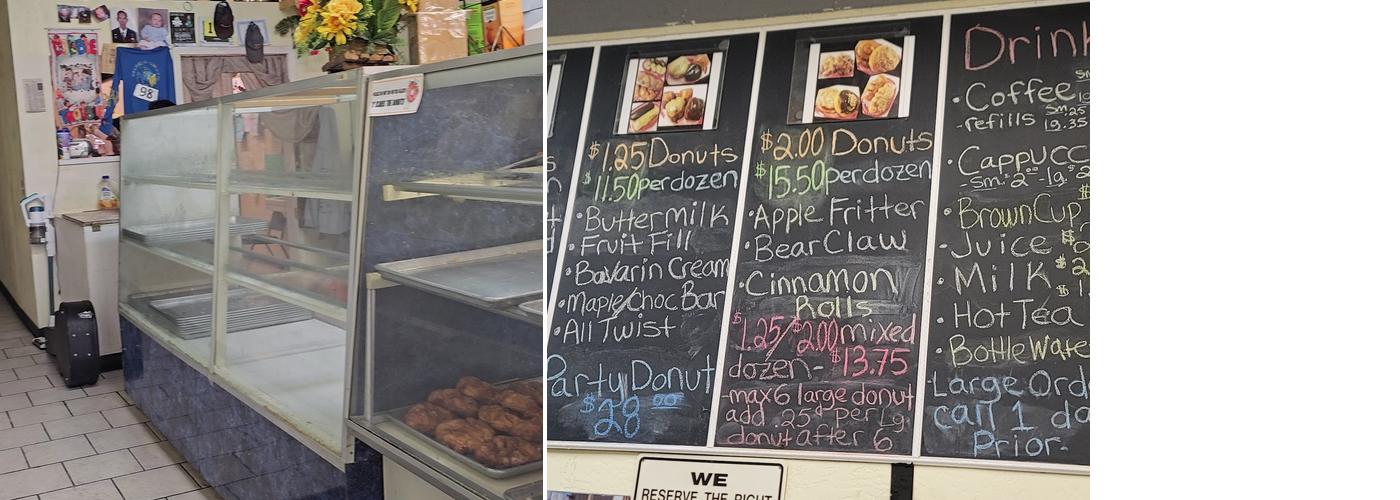 98
1
$1.25 Donuts
$11.50 per dozen
·Buttermilk
·Fruit Fill
·Bavarin Cream
·Maple/Choc Bar
·All Twist
Party Donut
$28.00
$2.00 Donuts
$15.50 per dozen
·Apple Fritter
·Bear Claw
·Cinnamon
Rolls
$1.25/$2.00 mixed
dozen- $13.75
-max 6 large donut
add .25¢ per Lg.
donut after 6
Drink
·Coffee
-refills sm .25
lg .35
·Cappucc
-sm. 2 -lg. 2
·Brown Cup
-Juice
·Milk $2
·Hot Tea
·Bottle Wate
·Large Ord
call 1 da
Prior-
WE
RESERVE THE RIGHT